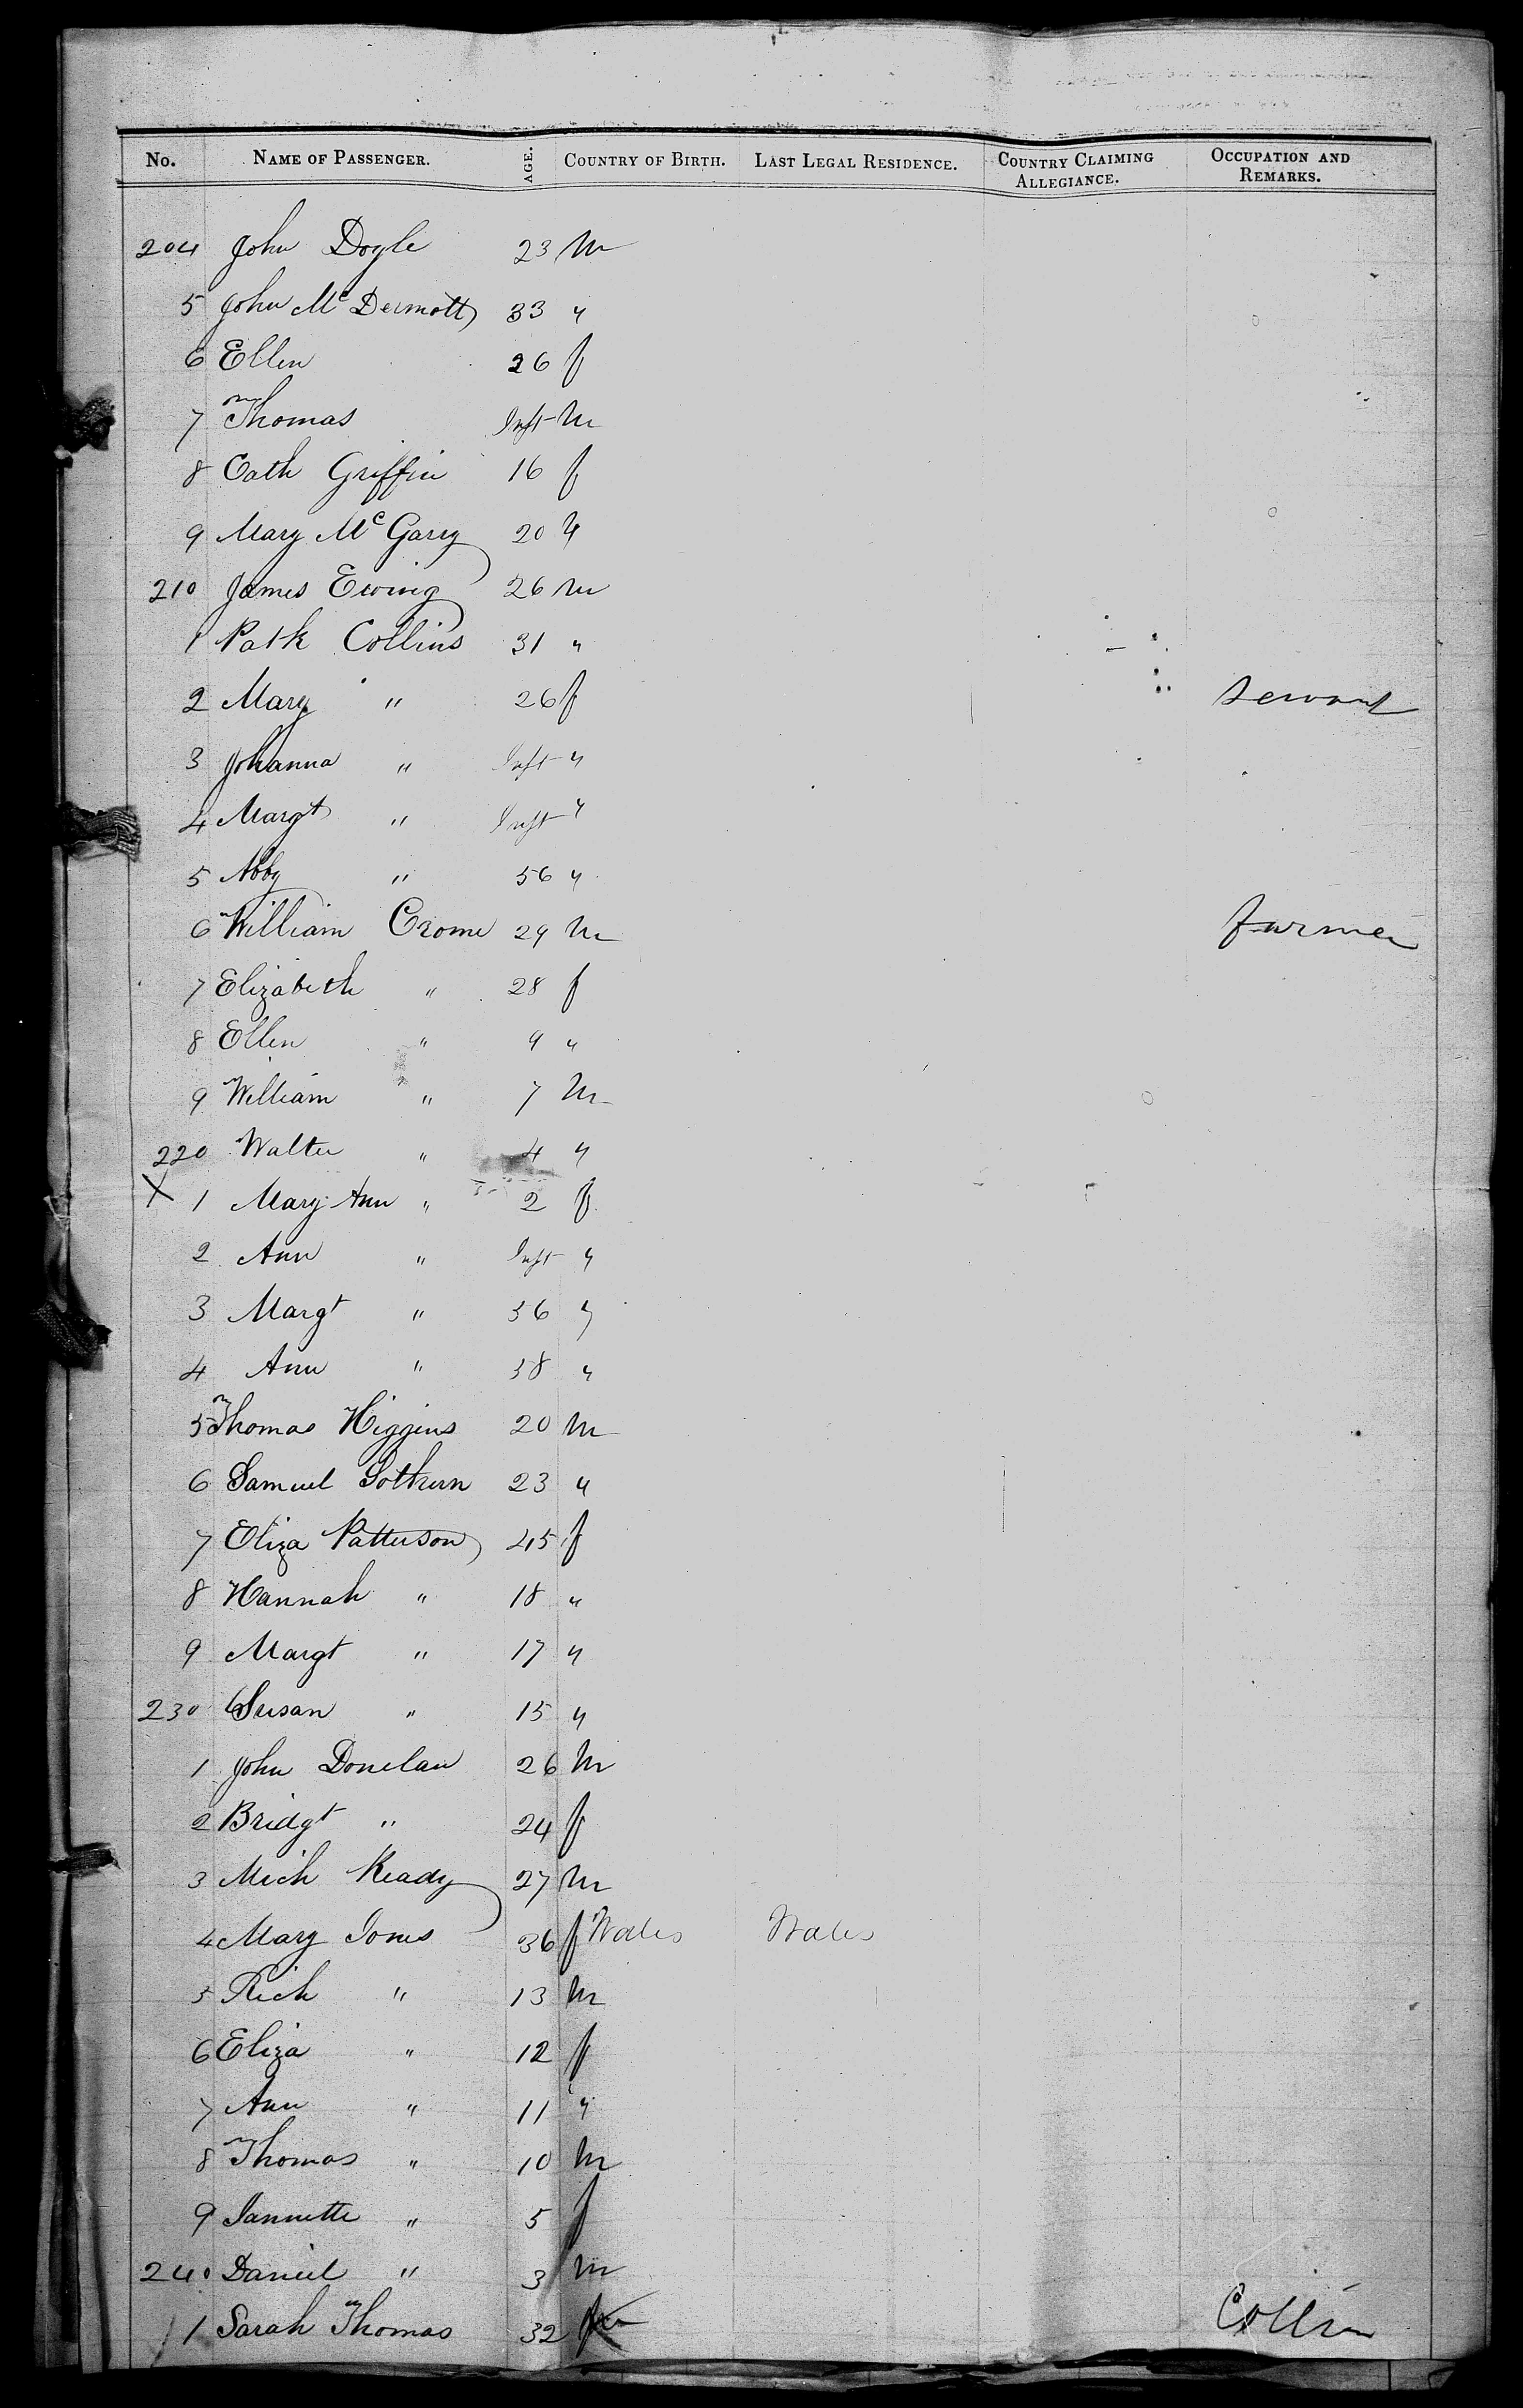 No. NAME OF PASSENGER. AGE. COUNTRY OF BIRTH. LAST LEGAL RESIDENCE. COUNTRY CLAIMING ALLEGIANCE. OCCUPATION AND REMARKS.
204 John Doyle 23 m
5 John McDermott 33 "
6 Ellen 26 f
7 Thomas Inft m
8 Cath Griffin 16 f
9 Mary McGarry 20 "
210 James Ewing 26 m
1 Patk Collins 31 "
2 Mary " 26 f servant
3 Johanna " Inft "
4 Margt " Inft "
5 Abby " 56 "
6 William Crome 29 m farmer
7 Elizabeth " 28 f
8 Ellen " 9 "
9 William " 7 m
220 Walter " 4 "
X 1 Mary Ann " 2 f
2 Ann " Inft "
3 Margt " 36 "
4 Ann " 38 "
5 Thomas Higgins 20 m
6 Samuel Sothern 23 "
7 Eliza Patterson 45 f
8 Hannah " 18 "
9 Margt " 17 "
230 Susan " 15 "
1 John Donelan 26 m
2 Bridgt " 24 f
3 Mich Keady 27 m
4 Mary Jones 36 f Wales Wales
5 Rich " 13 m
6 Eliza " 12 f
7 Ann " 11 "
8 Thomas " 10 m
9 Jannette " 5 f
240 Daniel " 3 m
1 Sarah Thomas 32